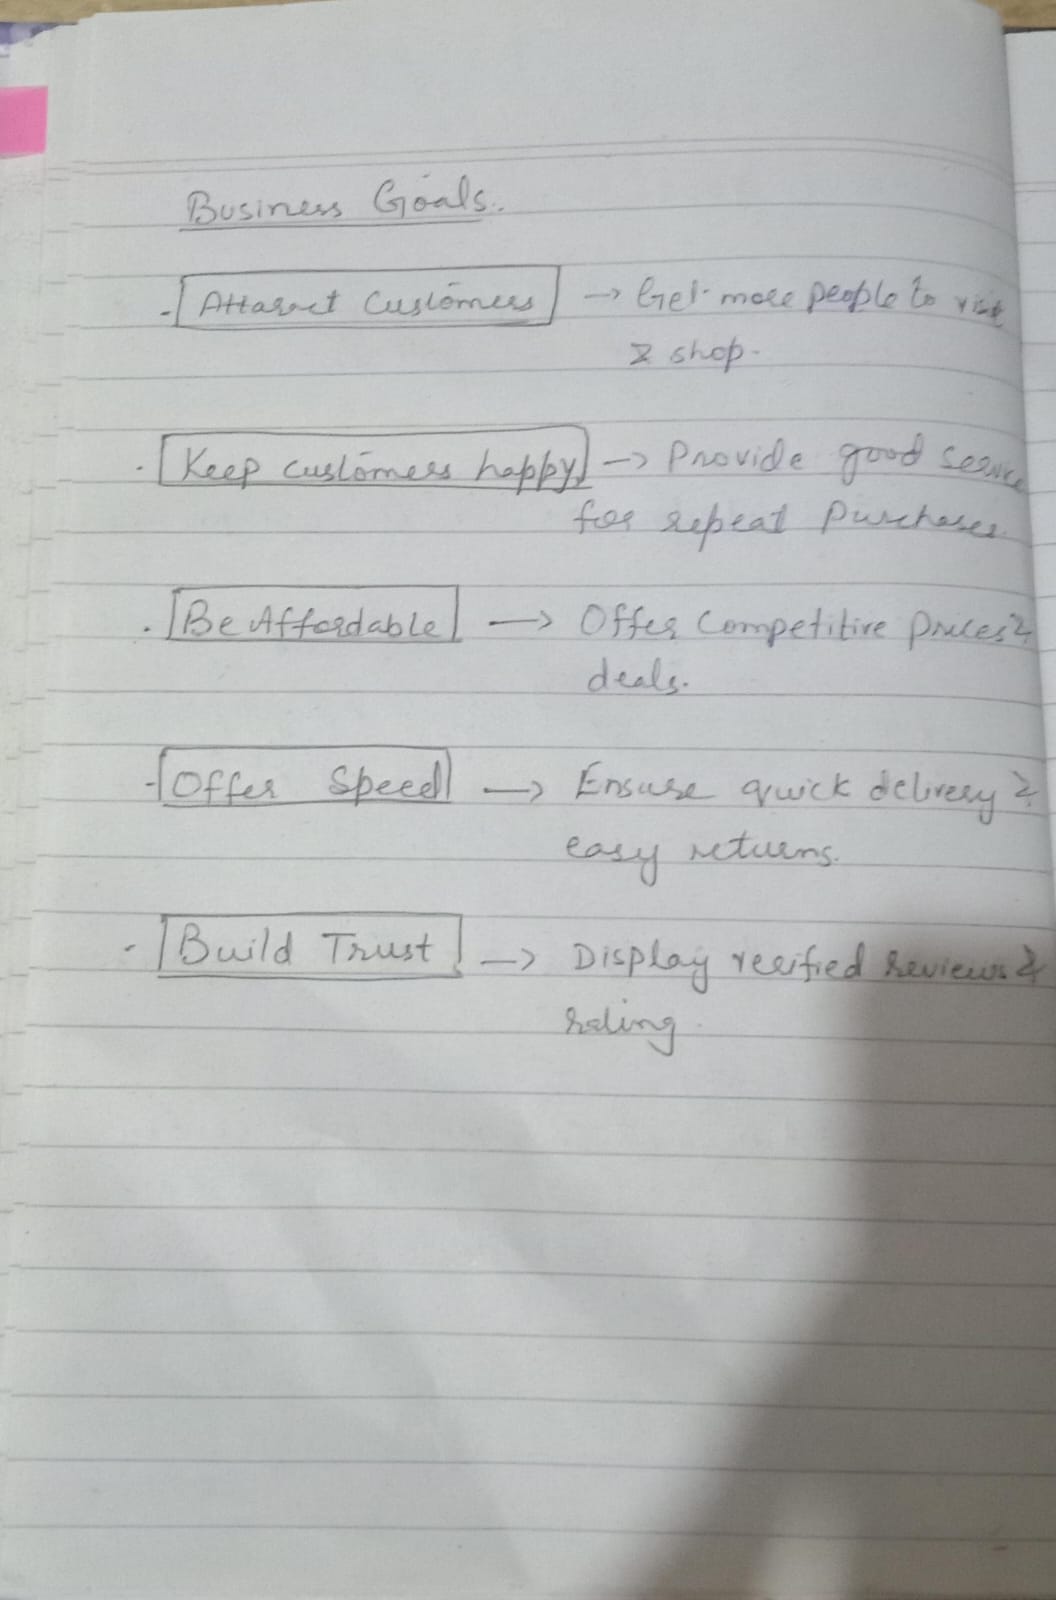 Business Goals.
- Attaract Customers → Get more people to visit
& shop.
. Keep customers happy → Provide good service
for repeat Purchases.
. Be Affordable → Offer Competitive Prices &
deals.
- Offer Speed → Ensure quick delivery &
easy returns.
- Build Trust → Display verified reviews &
rating.